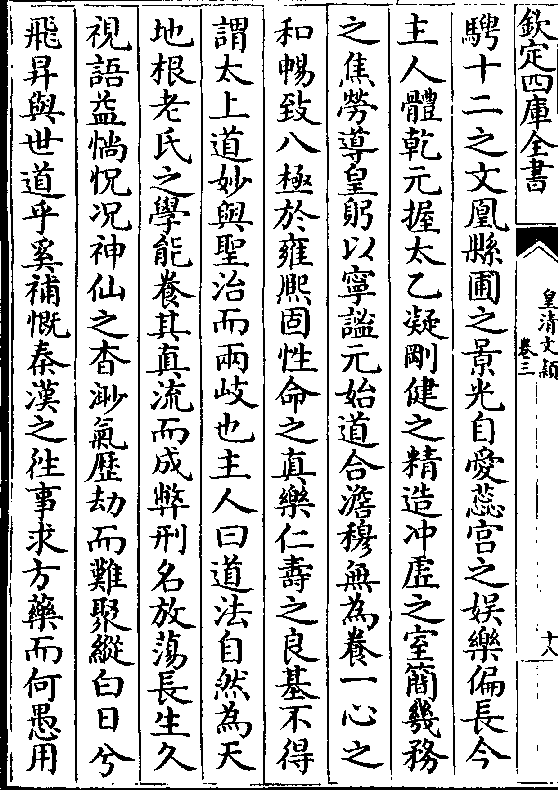 欽定四庫全書
皇清文穎
卷三
十八
騁十二之文凰縣圃之景光自愛蕊宮之娱樂偏長今
主人體乾元握太乙凝剛健之精造冲虛之室簡幾務
之焦勞導皇躬以寧謐元始道合澹穆無為養一心之
和暢致八極於雍熈固性命之真樂仁壽之良基不得
謂太上道妙與聖治而兩歧也主人曰道法自然為天
地根老氏之學能養其真流而成弊刑名放蕩長生久
視語益惝怳况神仙之杳渺氣歴劫而難聚縱白日兮
飛昇與世道乎奚補慨秦漢之徃事求方藥而何愚用